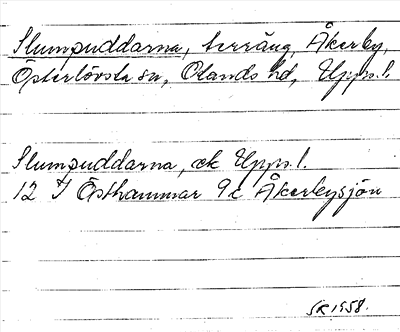 Slumpuddarna, terräng, Åkerby,
Österlövsta sn, Olands hd, Upps. l.
Slumpuddarna, ek Upps. l.
12 I Östhammar 9c Åkerbysjön
SK 1958.